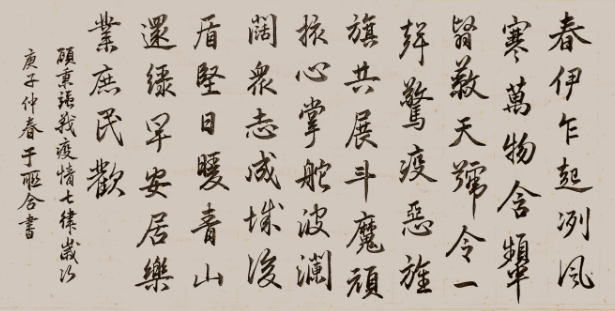 春伊乍起冽風
寒萬物含顰
翳蔽天號令一
聲驚疫惡旌
旗共展斗魔頑
核心掌舵波瀾
闊衆志成城後
盾堅日暖青山
還綠早安居樂
業庶民歡
秉疫情七律歲次
庚子仲春于合書